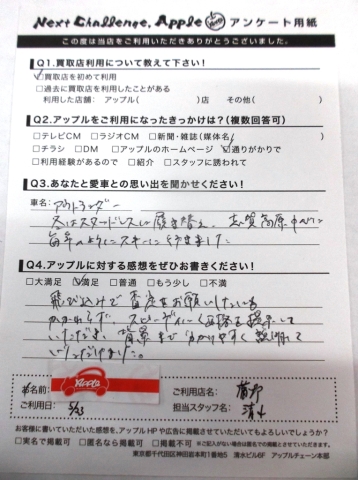 Next Challenge. Apple アンケート用紙
この度は当店をご利用いただきありがとうございました。
Q1.買取店利用について教えて下さい!
☑買取店を初めて利用
□過去に買取店を利用したことがある
利用した店舗: アップル( )店 その他( )
Q2.アップルをご利用になったきっかけは?(複数回答可)
□テレビCM □ラジオCM □新聞・雑誌(媒体名 )
□チラシ □DM □アップルのホームページ ☑通りがかりで
□利用経験があるので □紹介 □スタッフに誘われて
Q3.あなたと愛車との思い出を聞かせください!
車名: アウトランダー
冬はスタッドレスに履き替え、志賀高原中心に
毎年のようにスキーに行きました。
Q4.アップルに対する感想をぜひお書きください!
□大満足 ☑満足 □普通 □もう少し □不満
飛び込みで査定をお願いしたにも
かかわらず、スピーディーに金額を提示して
いただき、背景まで分かりやすく説明して
いただけました。
お名前: Apple
ご利用店名:
ご利用日:
担当スタッフ名: 清水
お客様に書いていただいた感想を、アップルHPや広告に掲載させていただいてもよろしいでしょうか?
□実名で掲載可 □匿名なら掲載可 □掲載不可 ※ご記入がない場合は匿名での掲載とさせていただきます。
東京都千代田区神田岩本町1番地5 清水ビル6F アップルチェーン本部